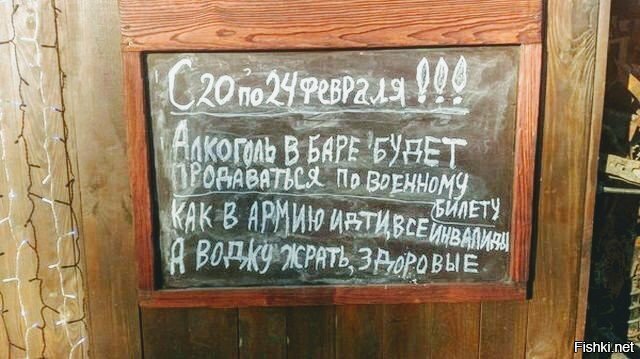 С 20 по 24 февраля !!!
Алкоголь в баре будет
продаваться по военному
билету
как в армию идти, все инвалиды
а воджу жрать, здоровые
Fishki.net